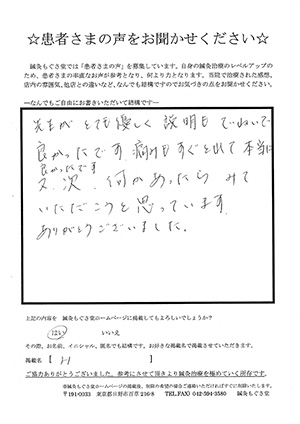 ☆患者さまの声をお聞かせください☆
鍼灸もぐさ堂では「患者さまの声」を募集しています。自身の鍼灸治療のレベルアップの
ため、患者さまの率直なお声が参考となり、何より力となります。当院で治療された感想、
店内の雰囲気、他店との違いなど、なんでも結構ですのでお気づきの点をお聞かせください。
―なんでもご自由にお書きいただいて結構です―
先生が とても優しく 説明も ていねいで
良かったです 痛みもすぐとれて 本当に
良かったです
又、次、何かあったら みて
いただこうと思っています
ありがとうございました。
上記の内容を 鍼灸もぐさ堂ホームページに掲載してもよろしいでしょうか?
はい いいえ
その際、お名前、イニシャル、匿名でも結構です。お好きな掲載名で掲載させていただきます。
掲載名【 H 】
ご協力ありがとうございました。参考にさせて頂きより鍼灸治療を極めていく所存です。
※鍼灸もぐさ堂のホームページの掲載後、削除の希望の場合ご連絡いただければすぐに削除いたします。
〒191-0033 東京都日野市百草 216-8 TEL.FAX) 042-594-3580 鍼灸もぐさ堂